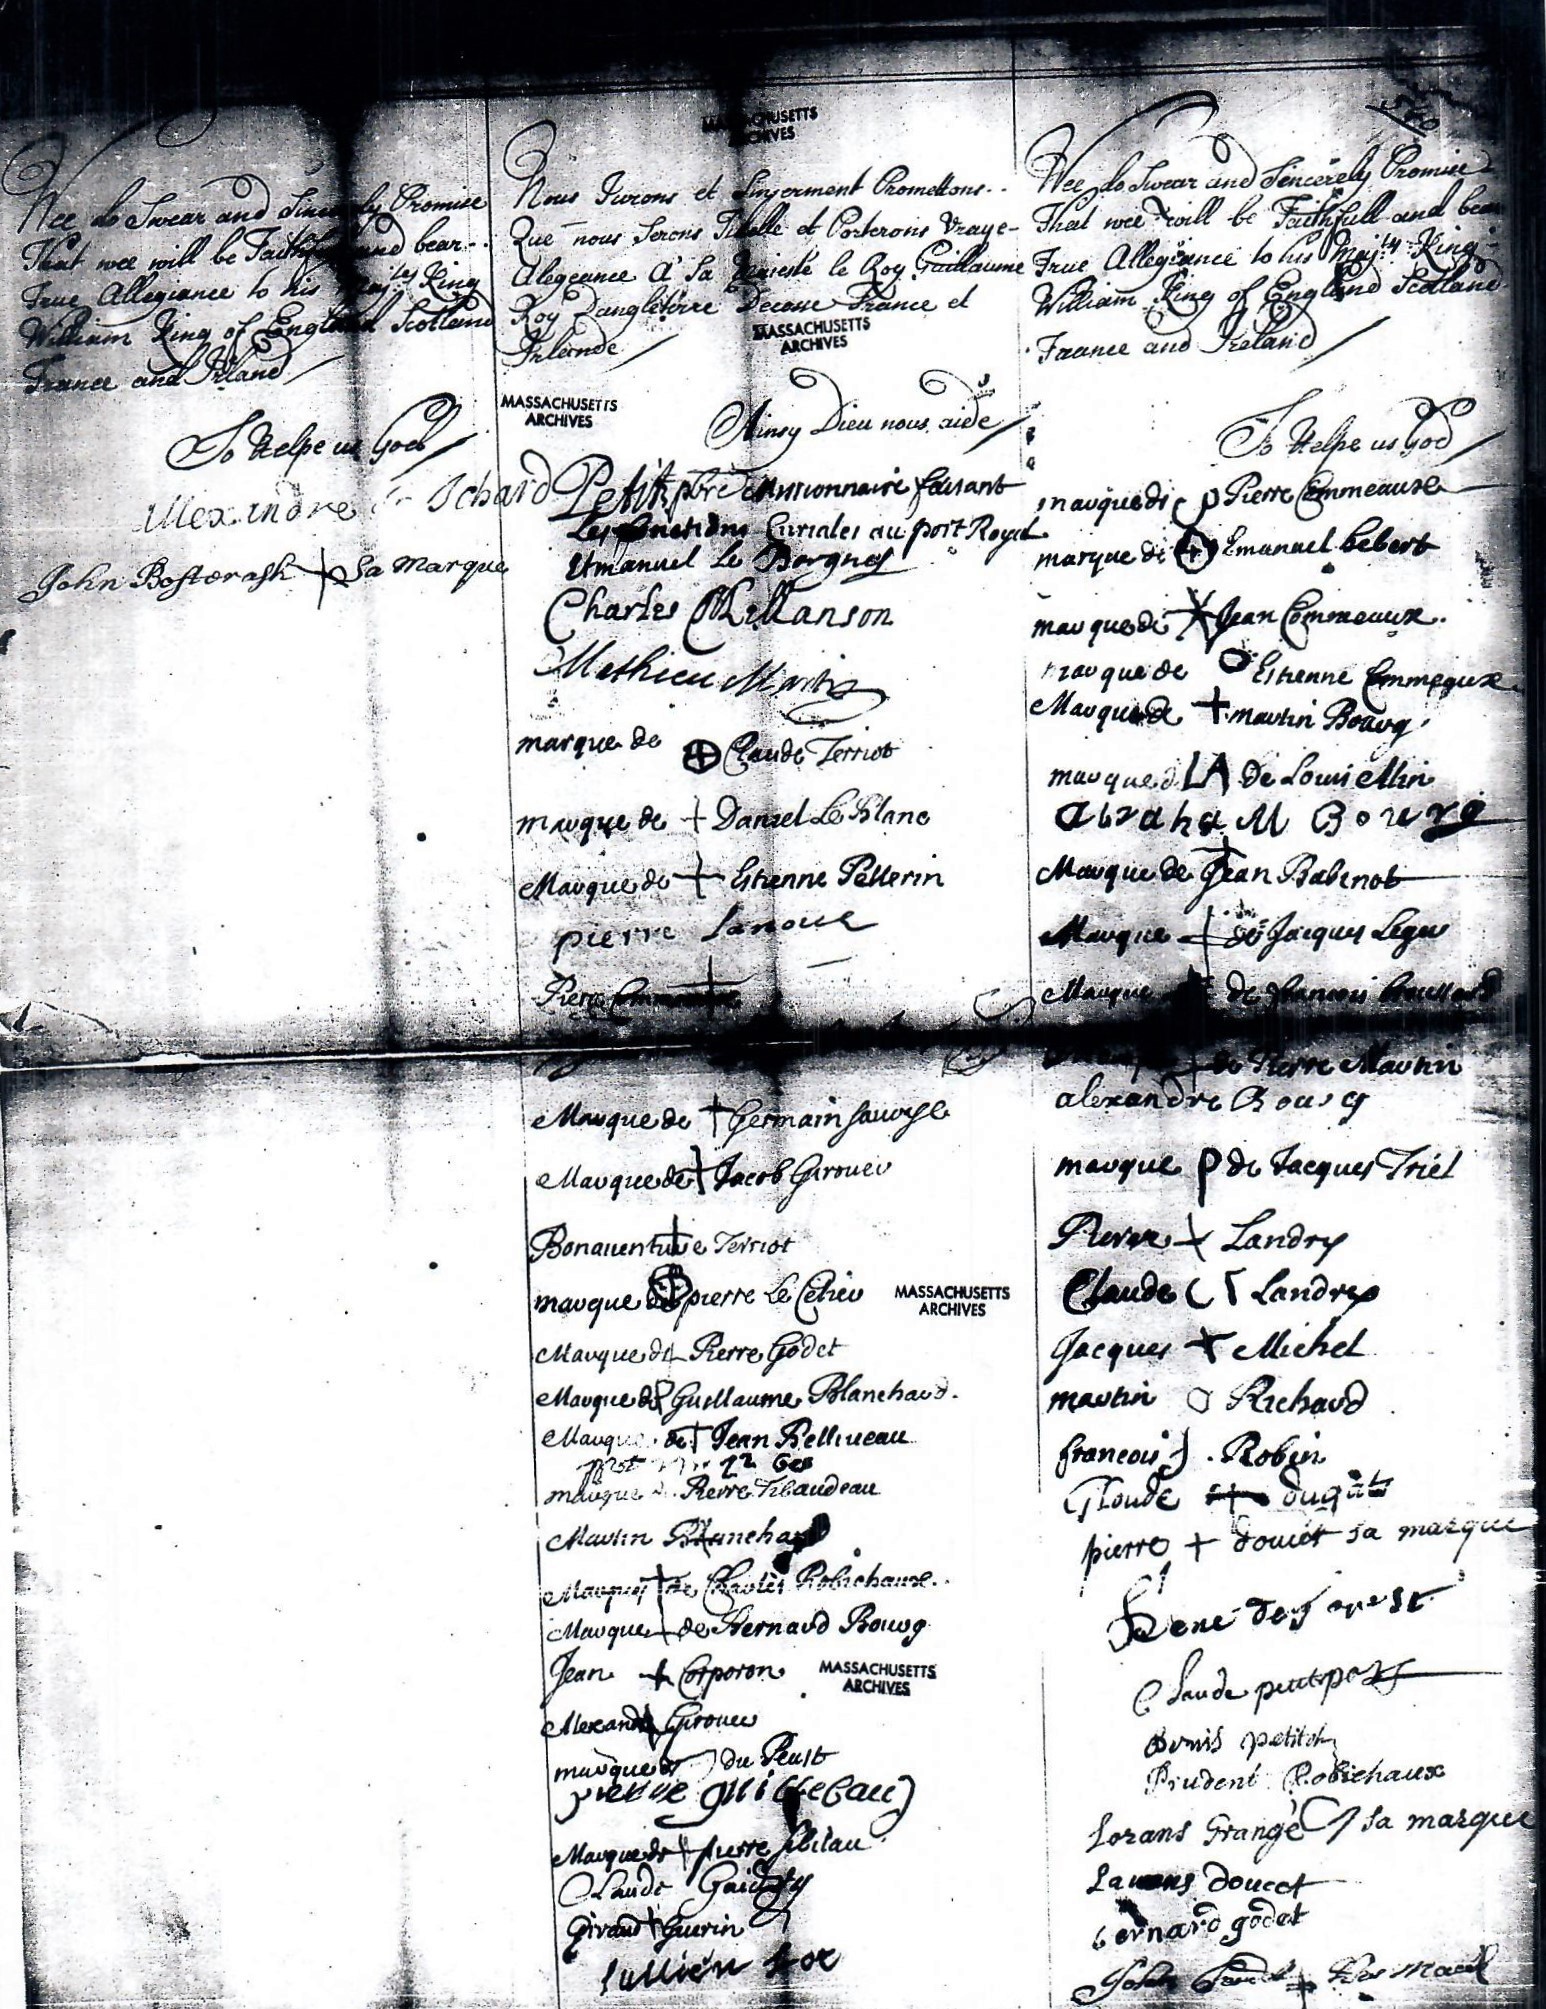 Wee do Swear and Sincerely Promise
That wee will be Faithfull and bear
True Allegiance to his Maj:tes King
William King of England Scotland
France and Irland
So Helpe us God
Alexandre Richard
John Bostorash + Sa Marque
MASSACHUSETTS
ARCHIVES
Nous Jurons et Sinserment Promettons
Que nous Serons Fidelle et Porterons Vraye-
Alegeance A Sa Majesté le Roy Guillaume
Roy Dangleterre Decosse France et
Irlande
MASSACHUSETTS
ARCHIVES
MASSACHUSETTS
ARCHIVES
Ainsy Dieu nous aide
Petit pbre Missionnaire faisant
Les fonctions Curiales au port Royal
Emanuel Le Borgne
Charles Mellanson
Mathieu Martin
marque de Claude Terriot
marque de + Daniel Le Blanc
Marque de + Estienne Pellerin
pierre Lanoue
Pierre
Marque de + Germain Savoye
Marque de + Jacob Girouer
Bonaventure Terriot
marque de pierre Le
MASSACHUSETTS
ARCHIVES
Marque de Pierre Godet
Marque de Guillaume Blanchard
Marque de + Jean Belliveau
marque de Pierre Tibaudeau
Martin Blanchard
Marque + de Charles Robichaux
Marque + de Bernard Bourg
Jean + Corporon
MASSACHUSETTS
ARCHIVES
Alexandre Girouer
marque de du Peust
pierre guillebau
Marque de + pierre Sibilau
Claude Gaidry
Giraud + Guerin
Jullien
Wee do Swear and Sincerely Promise
That wee will be Faithfull and bear
True Allegiance to his Maj:ty King
William King of England Scotland
France and Ireland
So Helpe us God
marque de Pierre Commeaux
marque de Emanuel hebert
marque de Jean Commeaux
marque de O Estienne Commeaux
Marque de + martin Bourg
marque d LA De Louis Allin
abraham Bourg
Marque de Jean Babinot
Marque + de Jacques Leger
Marque de francois broussard
+ de Pierre Martin
alexandre Bourg
marque P de Jacques Triel
Pierre + Landry
Claude C T Landry
Jacques + Michel
martin O Richard
francois . Robin
Cloude + dugats
pierre + doucet sa marque
Rene de forest
Claude petitpas
Denis petitot
Prudent Robichaux
Lorans Grangé sa marque
Laurans doucet
bernard godet
John + His Mark